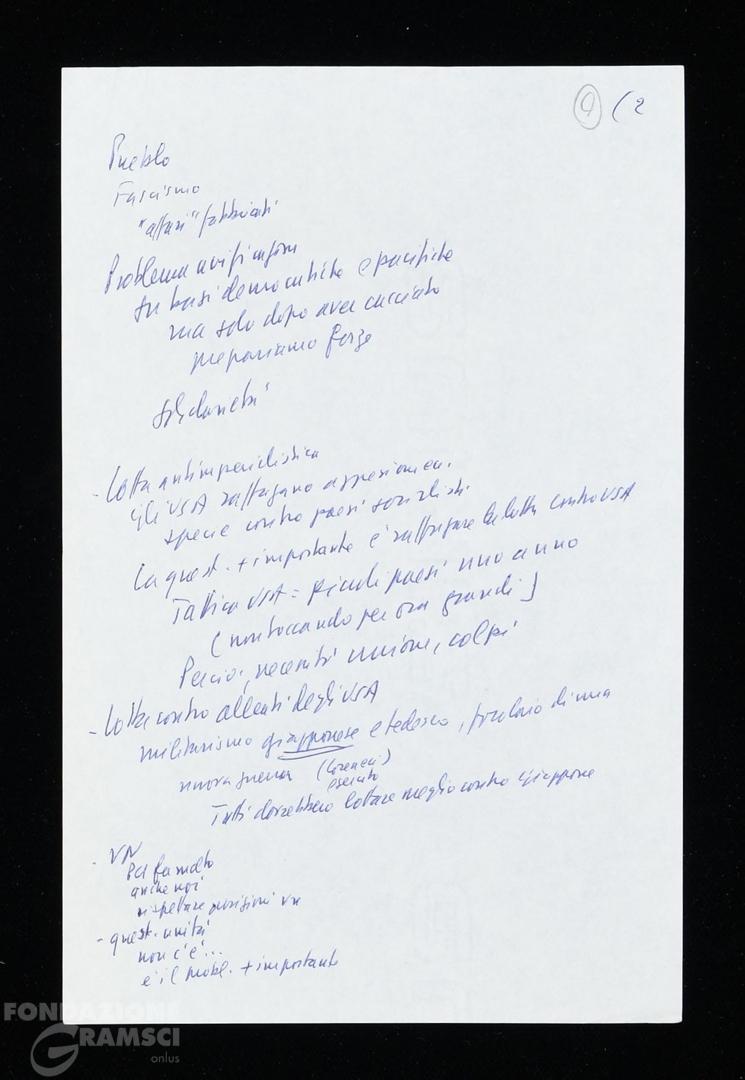 ④ (2
Pueblo
Fascismo
"affari" fabbricati
Problema unificazione
su basi democratiche e pacifiche
ma solo dopo aver cacciato
prepariamo forze
solidarietà
- Lotta antimperialistica
gli USA rafforzano aggressione
specie contro paesi socialisti
La quest. + importante è rafforzare la lotta contro USA
Tattica USA = piccoli paesi uno a uno
(non toccando per ora grandi)
Perciò, necessità unione, colpi
- Lotta contro alleati degli USA
militarismo giapponese e tedesco, focolaio di una
nuova guerra (coreani)
esercito
Tutti dovrebbero lottare meglio contro Giappone
- VN
PCI fa molto
anche noi
rispettare posizioni VN
- quest. unità
non c'è...
è il probl. + importante
FONDAZIONE
GRAMSCI
onlus